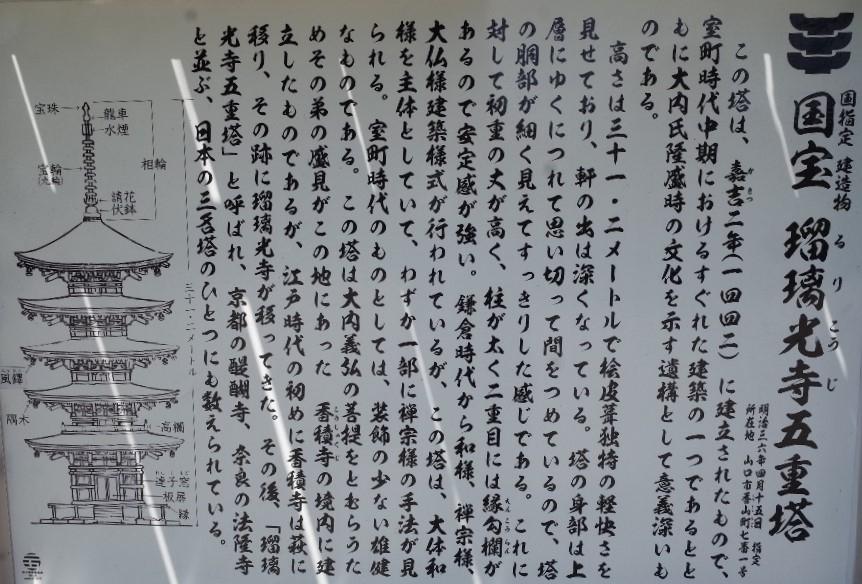 国指定 建造物
国宝 瑠璃光寺五重塔
るりこうじ
明治三六年四月十五日 指定
所在地 山口市香山町七番一号
この塔は、嘉吉二年(一四四二)に建立されたもので、
かきつ
室町時代中期におけるすぐれた建築の一つであるとと
もに大内氏隆盛時の文化を示す遺構として意義深いも
のである。
高さは三十一・二メートルで桧皮葺独特の軽快さを
見せており、軒の出は深くなっている。塔の身部は上
層にゆくにつれて思い切って間をつめているので、塔
の胴部が細く見えてすっきりした感じである。これに
対して初重の丈が高く、柱が太く二重目には縁勾欄が
えんこうらん
あるので安定感が強い。鎌倉時代から和様、禅宗様、
大仏様建築様式が行われているが、この塔は、大体和
様を主体としていて、わずか一部に禅宗様の手法が見
られる。室町時代のものとしては、装飾の少ない雄健
なものである。この塔は大内義弘の菩提をとむらうた
めその弟の盛見がこの地にあった香積寺の境内に建
立したものであるが、江戸時代の初めに香積寺は萩に
移り、その跡に瑠璃光寺が移ってきた。その後、「瑠璃
光寺五重塔」と呼ばれ、京都の醍醐寺、奈良の法隆寺
と並ぶ、日本の三名塔のひとつにも数えられている。
宝珠
龍車
水煙
相輪
宝輪
(九輪)
請花
伏鉢
三十一・二メートル
風鐸
隅木
高欄
連子窓
板扉
縁